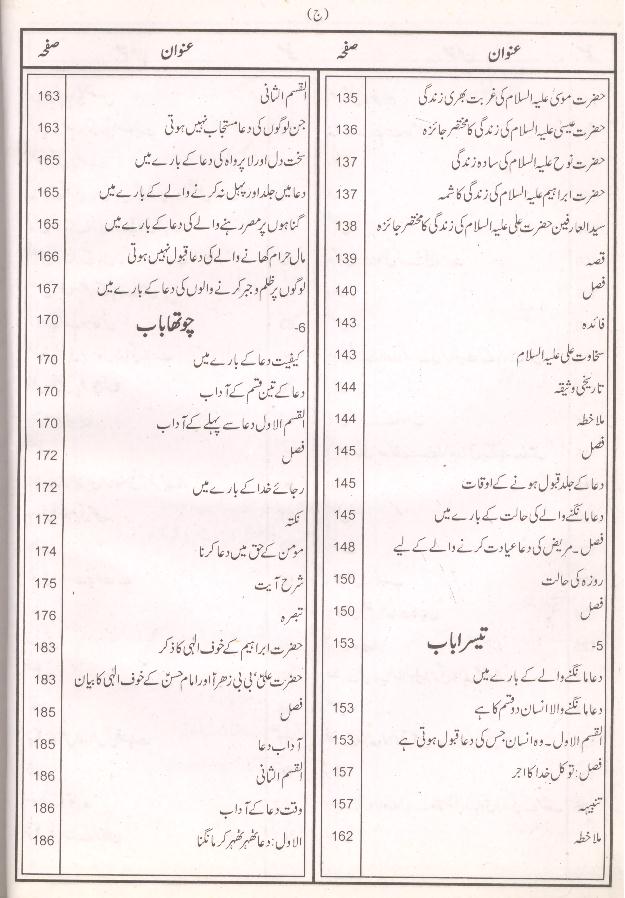 (ج)
عنوان صفحہ
حضرت موسیٰ علیہ السلام کی غربت بھری زندگی 135
حضرت عیسیٰ علیہ السلام کی زندگی کا مختصر جائزہ 136
حضرت نوح علیہ السلام کی سادہ زندگی 137
حضرت ابراہیم علیہ السلام کی زندگی کا شمہ 137
سید العارفین حضرت علی علیہ السلام کی زندگی کا مختصر جائزہ 138
قصہ 139
فصل 140
فائدہ 143
سخاوت علی علیہ السلام 143
تاریخی وثیقہ 144
ملاحظہ 144
فصل 145
دعا کے جلد قبول ہونے کے اوقات 145
دعا مانگنے والے کی حالت کے بارے میں 145
فصل۔ مریض کی دعا عیادت کرنے والے کے لیے 148
روزہ کی حالت 150
فصل 150
5- تیسرا باب 153
دعا مانگنے والے کے بارے میں
دعا مانگنے والا انسان دو قسم کا ہے 153
القسم الاول۔ وہ انسان جس کی دعا قبول ہوتی ہے 153
فصل: توکل خدا کا اجر 157
تنبیہہ 157
ملاحظہ 162
عنوان صفحہ
القسم الثانی 163
جن لوگوں کی دعا مستجاب نہیں ہوتی 163
سخت دل اور لا پرواہ کی دعا کے بارے میں 165
دعا میں جلد اور پہل نہ کرنے والے کے بارے میں 165
گناہوں پر مصر رہنے والے کی دعا کے بارے میں 165
مال حرام کھانے والے کی دعا قبول نہیں ہوتی 166
لوگوں پر ظلم و جبر کرنے والوں کی دعا کے بارے میں 167
6- چوتھا باب 170
کیفیت دعا کے بارے میں 170
دعا کے تین قسم کے آداب 170
القسم الاول دعا سے پہلے کے آداب 170
فصل 172
رجائے خدا کے بارے میں 172
نکتہ 172
مومن کے حق میں دعا کرنا 174
شرح آیت 175
تبصرہ 176
حضرت ابراہیم کے خوف الٰہی کا ذکر 183
حضرت علیؑ، بی بی زھراؑ اور امام حسنؑ کے خوف الٰہی کا بیان 183
فصل 185
آداب دعا 185
القسم الثانی 186
وقت دعا کے آداب 186
الاول: دعا ٹھہر ٹھہر کر مانگنا 186